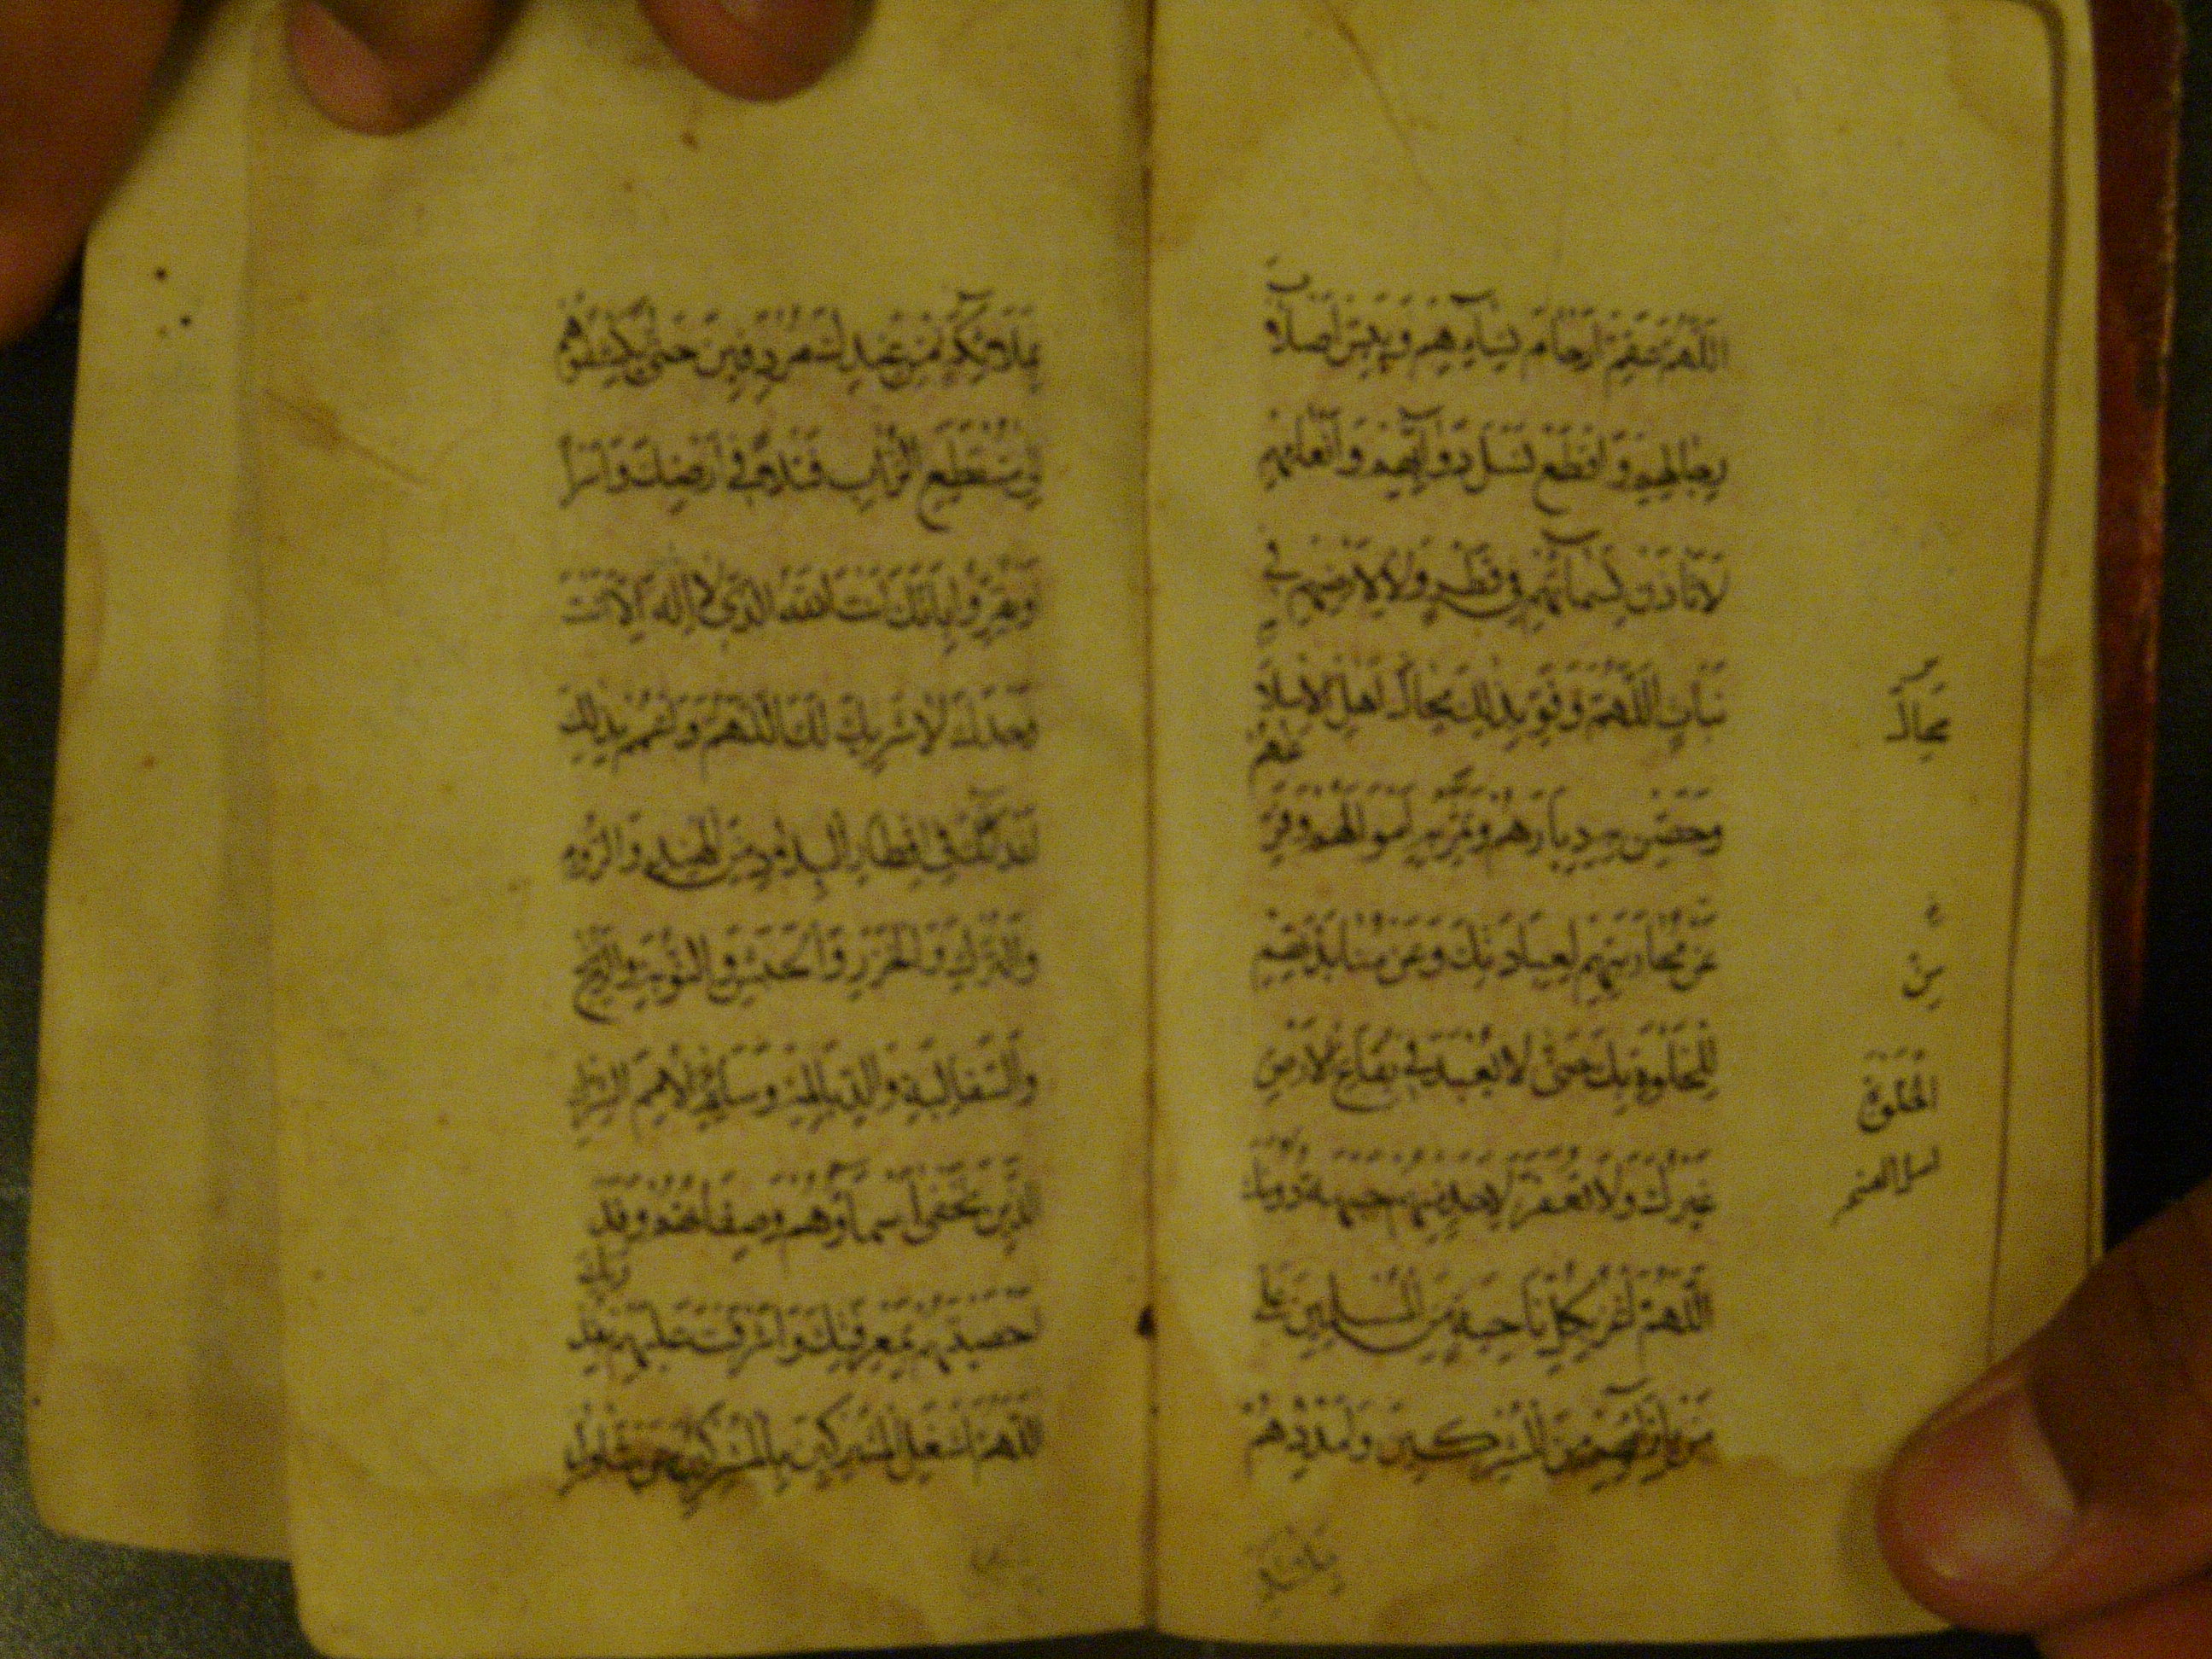 اللَّهُمَّ عَقِّمْ أَرْحَامَ نِسَائِهِمْ وَيَبِّسْ أَصْلَابَ
رِجَالِهِمْ وَاقْطَعْ نَسْلَ دَوَابِّهِمْ وَأَنْعَامِهِمْ
لَا تَأْذَنْ لِسَمَائِهِمْ فِي قَطْرٍ وَلَا لِأَرْضِهِمْ فِي
نَبَاتٍ اللَّهُمَّ وَقَوِّ بِذَلِكَ مِحَالَ أَهْلِ الْإِسْلَامِ
وَحَصِّنْ بِهِ دِيَارَهُمْ وَثَمِّرْ بِهِ أَمْوَالَهُمْ وَفَرِّغْهُمْ
عَنْ مُحَارَبَتِهِمْ لِعِبَادَتِكَ وَعَنْ مُنَابَذَتِهِمْ
لِلْخَلْوَةِ بِكَ حَتَّى لَا يُعْبَدَ فِي بِقَاعِ الْأَرْضِ
غَيْرُكَ وَلَا تُعَفَّرَ لِأَحَدٍ مِنْهُمْ جَبْهَةٌ دُونَكَ
اللَّهُمَّ اغْزُ بِكُلِّ نَاحِيَةٍ مِنَ الْمُسْلِمِينَ عَلَى
مَنْ بِإِزَائِهِمْ مِنَ الْمُشْرِكِينَ وَأَمْدِدْهُمْ
مِحَالَ
الْخَلْوَةِ
بِمَلَائِكَةٍ مِنْ عِنْدِكَ مُرْدِفِينَ حَتَّى يَكْشِفُوهُمْ
إِلَى مُنْقَطَعِ التُّرَابِ قَتْلًا فِي أَرْضِكَ وَأَسْرًا
أَوْ يُقِرُّوا بِأَنَّكَ أَنْتَ اللَّهُ الَّذِي لَا إِلَهَ إِلَّا أَنْتَ
وَحْدَكَ لَا شَرِيكَ لَكَ اللَّهُمَّ وَاعْمُمْ بِذَلِكَ
أَعْدَاءَكَ فِي أَقْطَارِ الْبِلَادِ مِنَ الْهِنْدِ وَالرُّومِ
وَالتُّرْكِ وَالْخَزَرِ وَالْحَبَشِ وَالنُّوبَةِ وَالزَّنْجِ
وَالسَّقَالِبَةِ وَالدَّيَالِمَةِ وَسَائِرِ أُمَمِ الشِّرْكِ
الَّذِينَ تَخْفَى أَسْمَاؤُهُمْ وَصِفَاتُهُمْ وَقَدْ
أَحْصَيْتَهُمْ بِمَعْرِفَتِكَ وَأَشْرَفْتَ عَلَيْهِمْ بِقُدْرَتِكَ
اللَّهُمَّ اشْغَلِ الْمُشْرِكِينَ بِالْمُشْرِكِينَ عَنْ تَنَاوُلِ